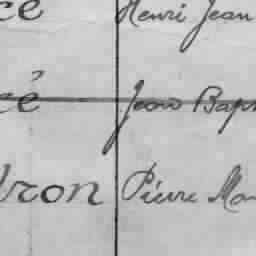 ce Henri Jean
cé Jean Bap
dron Pierre Ma